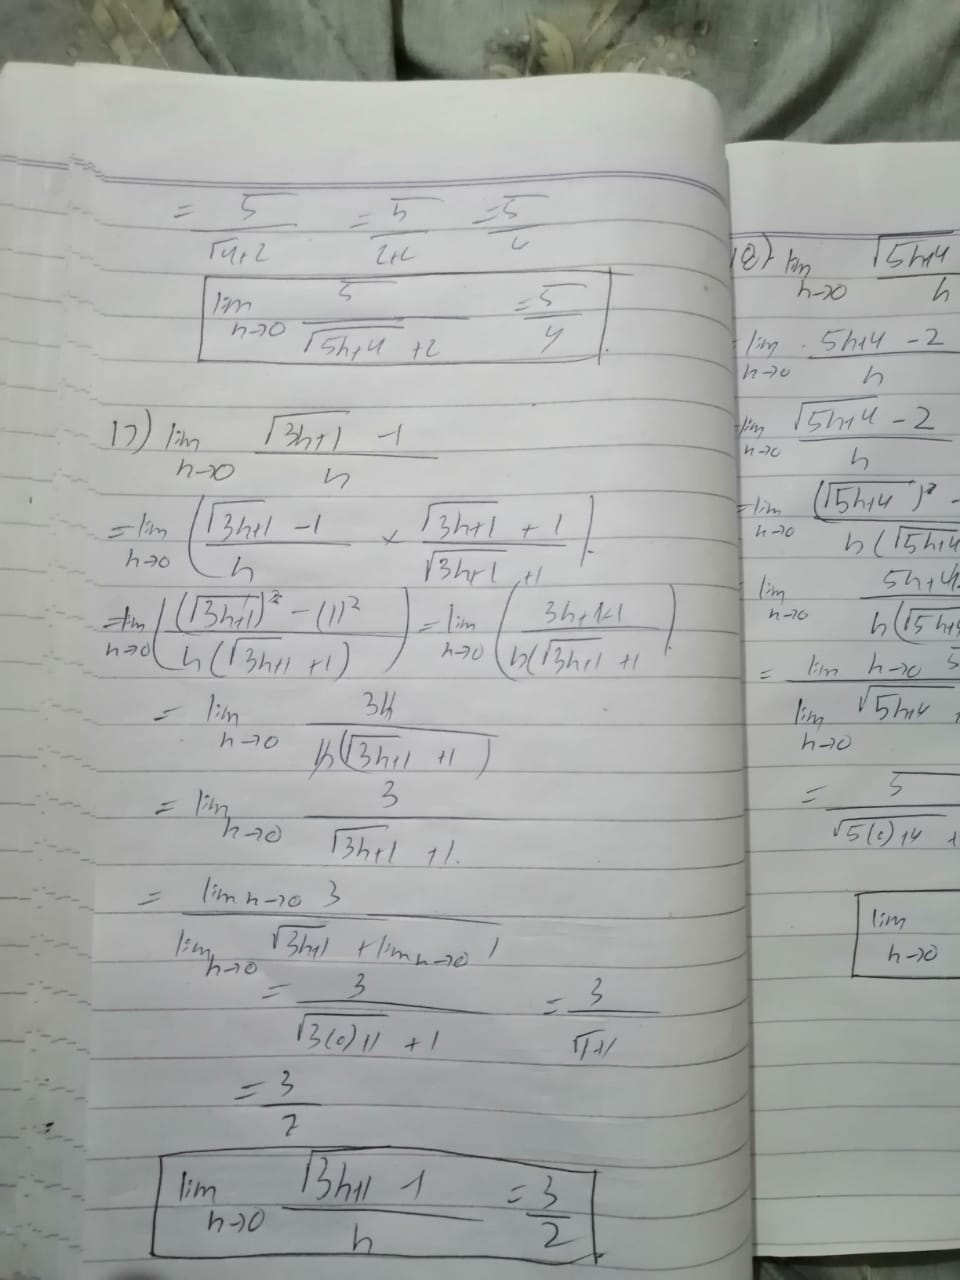 = 5/(√4+2) = 5/(2+2) = 5/4
lim h→0 5/(√5h+4 +2) = 5/4
17) lim h→0 (√3h+1 -1)/h
= lim h→0 ((√3h+1 -1)/h × (√3h+1 + 1)/(√3h+1 +1))
= lim h→0 ((√3h+1)² - (1)²)/(h(√3h+1 +1)) = lim h→0 (3h+1-1)/(h(√3h+1 +1)
= lim h→0 3h/(h(√3h+1 +1))
= lim h→0 3/(√3h+1 +1)
= (lim h→0 3)/(lim h→0 √3h+1 + lim h→0 1)
= 3/(√3(0)+1 +1) = 3/(√1+1)
= 3/2
lim h→0 (√3h+1 -1)/h = 3/2
18) lim h→0 √5h+4 / h
lim h→0 (5h+4 -2)/h
lim h→0 (√5h+4 -2)/h
= lim h→0 (√5h+4)² - / h(√5h+4
lim h→0 5h+4 / h(√5h+4
= lim h→0 5 / lim h→0 √5h+4
= 5/√5(0)+4 +
lim h→0